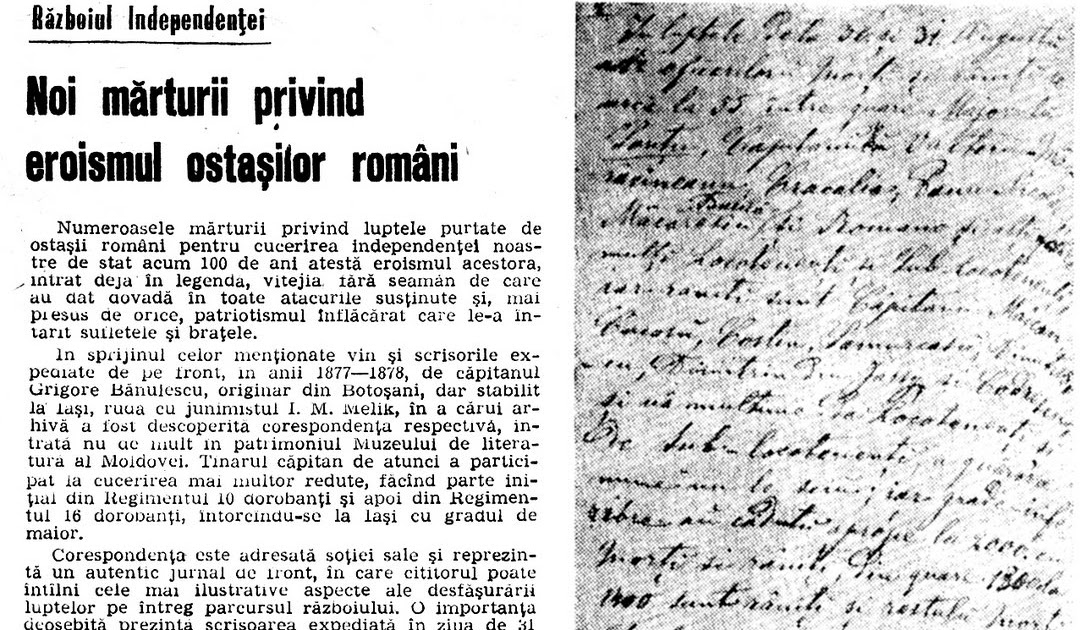 Războiul Independenţei
Noi mărturii privind
eroismul ostaşilor români
Numeroasele mărturii privind luptele purtate de
ostaşii români pentru cucerirea independenţei noas-
tre de stat acum 100 de ani atestă eroismul acestora,
intrat deja în legenda, vitejia fără seamăn de care
au dat dovadă în toate atacurile susţinute şi, mai
presus de orice, patriotismul înflăcărat care le-a în-
tărit sufletele şi braţele.
In sprijinul celor menţionate vin şi scrisorile ex-
pediate de pe front, în anii 1877—1878, de căpitanul
Grigore Bănulescu, originar din Botoşani, dar stabilit
la Iaşi, rudă cu junimistul I. M. Melik, în a cărui ar-
hivă a fost descoperită corespondenţa respectivă, in-
trată nu de mult în patrimoniul Muzeului de litera-
tură al Moldovei. Tînărul căpitan de atunci a partici-
pat la cucerirea mai multor redute, făcînd parte ini-
ţial din Regimentul 10 dorobanţi şi apoi din Regimen-
tul 16 dorobanţi, întorcîndu-se la Iaşi cu gradul de
maior.
Corespondenţa este adresată soţiei sale şi reprezin-
tă un autentic jurnal de front, în care cititorul poate
întîlni cele mai ilustrative aspecte ale desfăşurării
luptelor pe întreg parcursul războiului. O importanţă
deosebită prezintă scrisoarea expediată în ziua de 31
In luptele dela 30 şi 31 Augustu
morţi şi răniţi
la 55 între quare Majorulu
Şonţu, Căpitanii
Romano
mulţi Locotenenţi şi Sub-locotenenţi
iar răniţi sunt Căpitanu
Dimitriu din Jassy şi
şi uă mulţime de Locotenenţi şi
Sub-locotenenţi, a quărora
nume nu le sciu, iar grade infe
au cădutu aprope la 2000
morţi si răniţi, din quare
1400 sunt răniţi şi restulu morţi